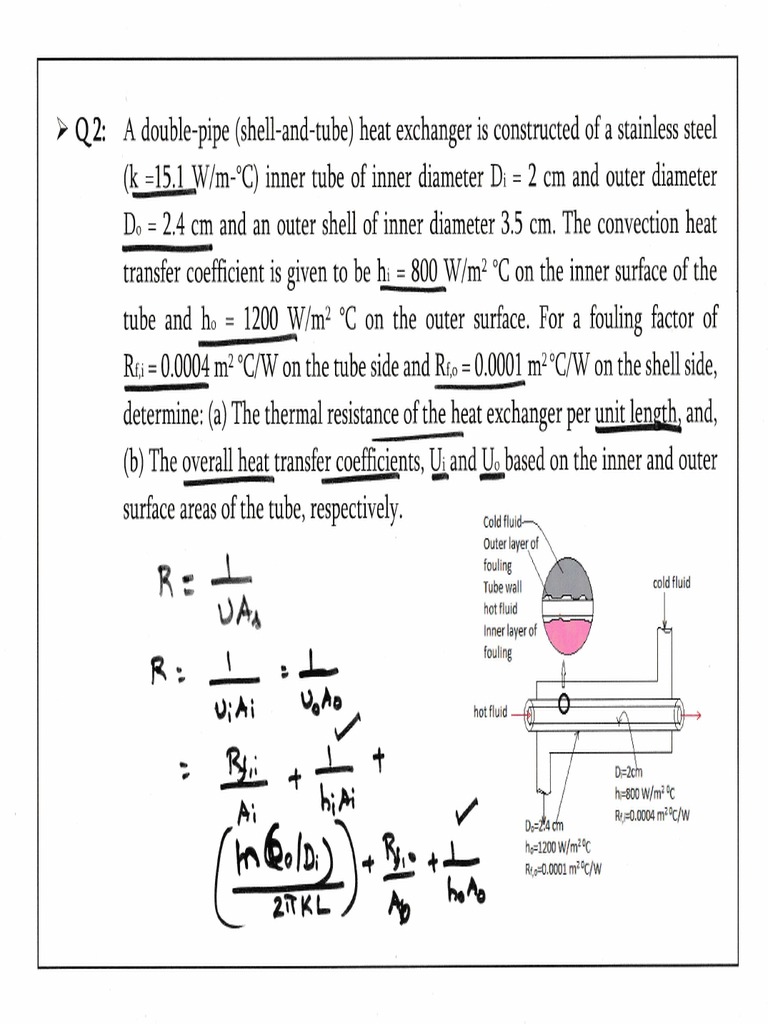 ➤ Q2: A double-pipe (shell-and-tube) heat exchanger is constructed of a stainless steel
(k =15.1 W/m-°C) inner tube of inner diameter Di = 2 cm and outer diameter
Do = 2.4 cm and an outer shell of inner diameter 3.5 cm. The convection heat
transfer coefficient is given to be hi = 800 W/m² °C on the inner surface of the
tube and ho = 1200 W/m² °C on the outer surface. For a fouling factor of
Rf,i = 0.0004 m² °C/W on the tube side and Rf,o = 0.0001 m² °C/W on the shell side,
determine: (a) The thermal resistance of the heat exchanger per unit length, and,
(b) The overall heat transfer coefficients, Ui and Uo based on the inner and outer
surface areas of the tube, respectively.
R = 1/UAs
R = 1/UiAi = 1/UoAo
= Rf,i/Ai + 1/hiAi +
(ln(Do/Di)/2πKL) + Rf,o/Ao + 1/hoAo
Cold fluid
Outer layer of
fouling
Tube wall
hot fluid
Inner layer of
fouling
cold fluid
hot fluid
Di=2cm
hi=800 W/m² °C
Rf,i=0.0004 m² °C/W
Do=2.4 cm
ho=1200 W/m² °C
Rf,o=0.0001 m² °C/W